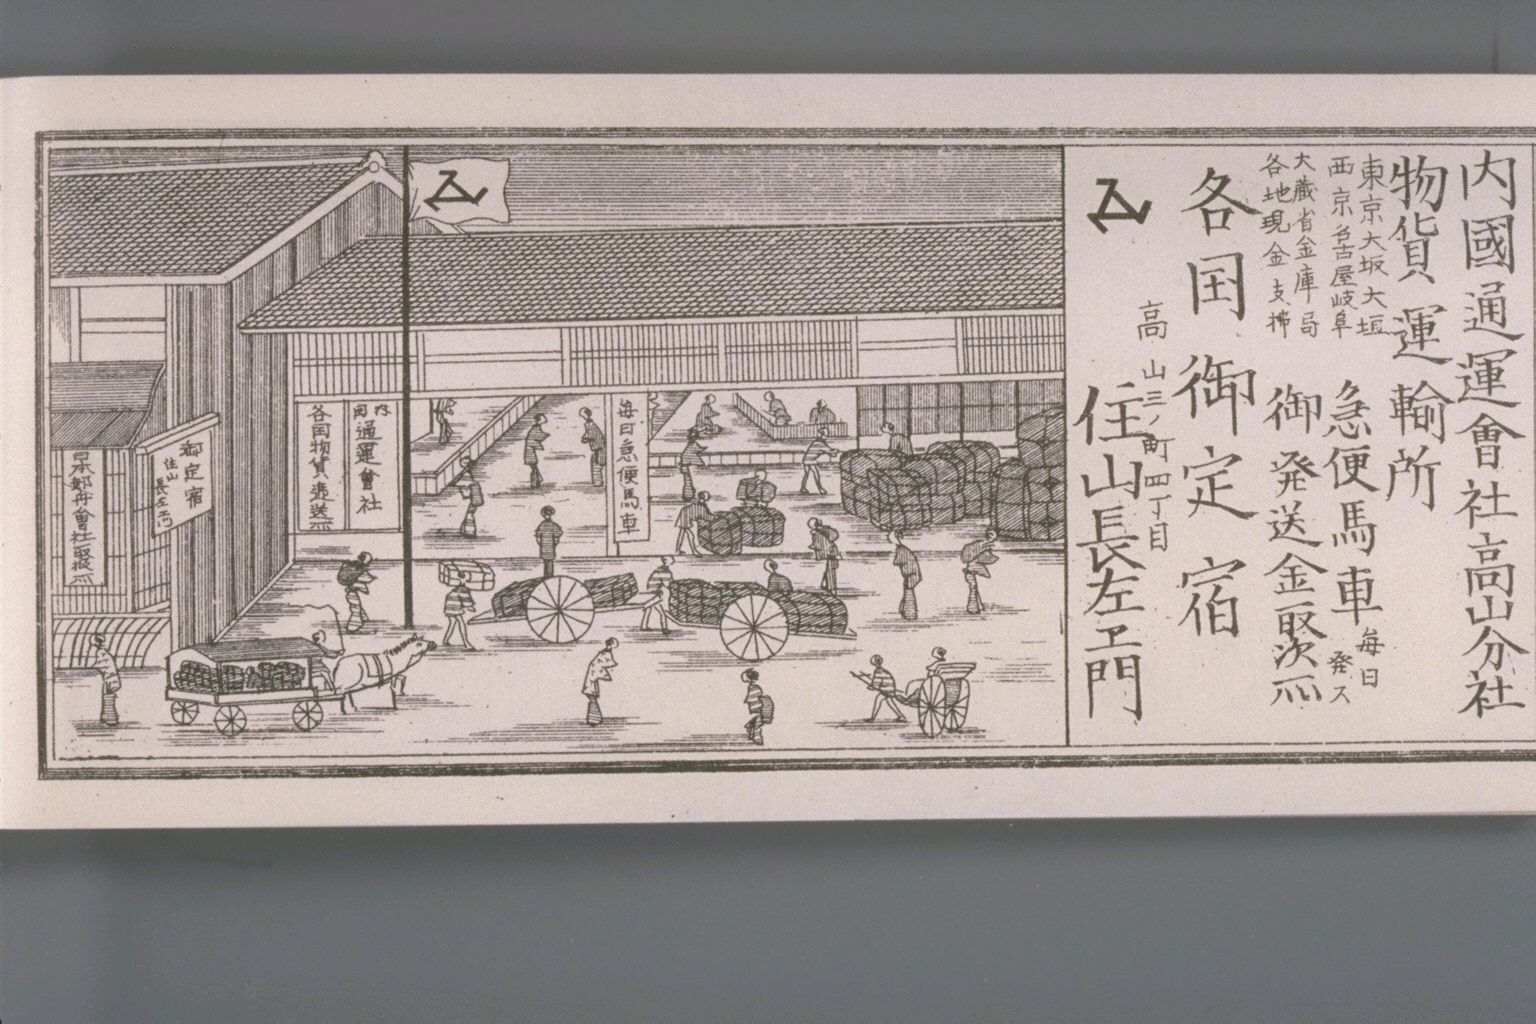 内國通運會社高山分社
物貨運輸所
東京大坂大垣
西京名古屋岐阜
急便馬車
毎日
発ス
大蔵省金庫局
各地現金支拂
御発送金取次所
各囯御定宿
高山三ノ町四丁目
住山長左ヱ門
毎日急便馬車
内囯通運會社
各囯物貨逓送所
御定宿
住山
長左ヱ門